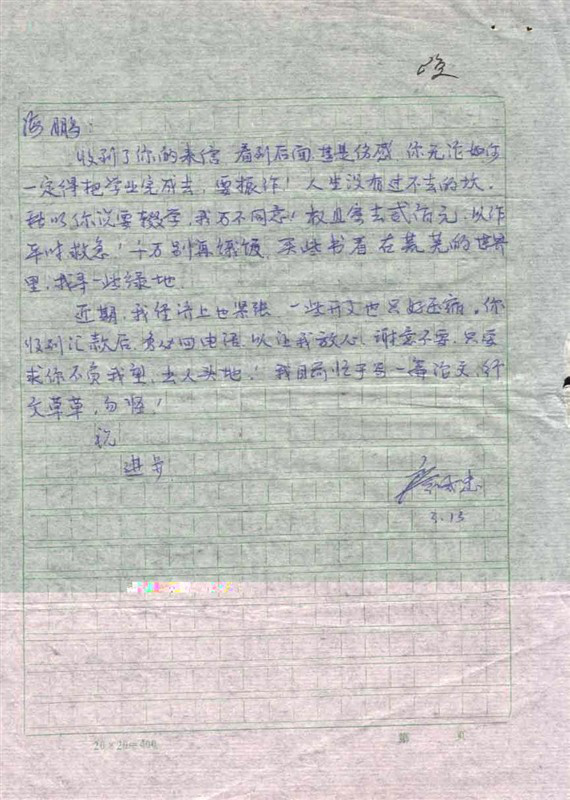 海鹏：
收到了你的来信，看到后面，甚是伤感，你无论如何
一定得把学业完成去，要振作！人生没有过不去的坎。
所以你说要辍学，我万不同意！权且寄去贰佰元，以作
平时救急！千万别再嫌 买些书看 在荒芜的世界
里，找寻一些绿地。
近期，我经济上也紧张，一些开支也只好压缩。你
收到汇款后，务必回电话，以让我放心！谢意不要，只要
求你不负我望，出人头地！我目前忙于写一篇论文，行
文草草，勿怪！
祝
进步
3.13
20×20=400
第 页